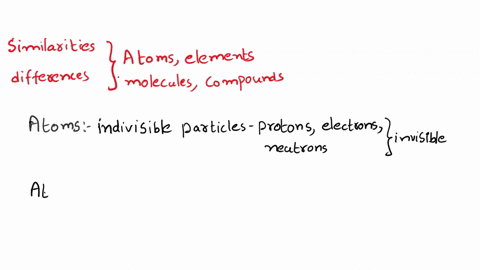 Similarities
differences
Atoms, elements
molecules, compounds
Atoms:- indivisible particles - protons, electrons,
neutrons
invisible
At